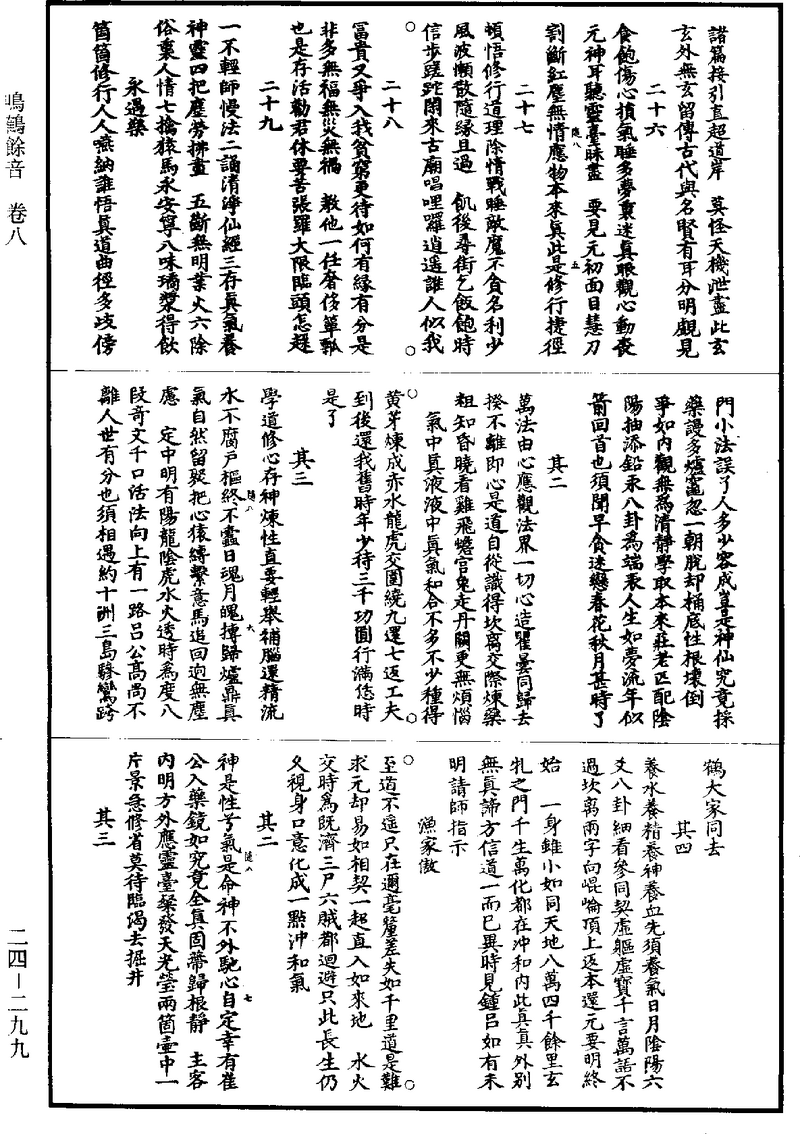 諸篇接引直超道岸　莫怪天機泄盡此玄
玄外無玄留傳古代與名賢有耳分明覷見
二十六
食飽傷心損氣睡多夢裏迷真眼觀心動喪
元神耳聽靈臺昧盡　要見元初面目慧刀
割斷紅塵無情應物本來真此是修行捷徑
二十七
頓悟修行道理除情戰睡敵魔不貪名利少
風波懶散隨緣且過　飢後尋街乞飯飽時
信步蹉跎閑來古廟唱哩囉逍遥誰人似我
二十八
冨貴又爭入我貧窮更待如何有緣有分是
非多無福無災無禍　教他一任奢侈簞瓢
也是存活勸君休要苦張羅大限臨頭怎趓
二十九
一不輕師慢法二誦清淨仙經三存真氣養
神靈四把塵勞拂盡　五斷無明業火六除
俗裏人情七擒猿馬永安寧八味瓊漿得飲
永遇樂
箇箇修行人人嚥納誰悟真道曲徑多歧傍
門小法誤了人多少容成喜是神仙究竟採
藥謾多爐竈忽一朝脫却桶底性根壞倒
爭如内觀無為清靜學取本來莊老匹配陰
陽抽添鉛汞八卦為端表人生如夢流年似
箭回首也須聞早貪迷戀春花秋月甚時了
其二
萬法由心應觀法界一切心造瞿曇同歸去
揆不離即心是道自從識得坎离交際煉藥
粗知昏曉看雞飛蟾宫兔走丹闕更無煩惱
氣中真液液中真氣和合不多不少種得
黄芽煉成赤水龍虎交圍繞九還七返工夫
到後還我舊時年少待三千功圓行滿恁時
是了
其三
學道修心存神煉性直要輕舉補腦還精流
水不腐戶樞終不蠹日魂月魄摶歸爐鼎真
氣自然留㝎把心猿縛繫意馬追回迥無塵
慮　定中明有陽龍陰虎水火透時為度八
段奇文千口活法向上有一路呂公高尚不
離人世有分也須相遇約十洲三島驂鸞跨
鶴大家同去
其四
養水養精養神養血先須養氣日月陰陽六
爻八卦細看參同契虛軀虛寶千言萬語不
過坎离兩字向崐崘頂上返本還元要明終
始　一身雖小如同天地八萬四千餘里玄
牝之門千生萬化都在沖和内此真真外別
無真諦方信道一而已異時見鍾呂如有未
明請師指示
漁家傲
至道不遥只在邇毫釐差失如千里道是難
求元却易如相契一超直入如來地　水火
交時為既濟三尸六賊都迴避只此長生仍
久視身口意化成一點沖和氣
其二
神是性兮氣是命神不外馳心自定幸有崔
公入藥鏡如究竟全真固蔕歸根静　主客
内明方外應靈臺粲發天光瑩兩箇壷中一
片景急修省莫待臨渴去掘井
其三
鳴鶴餘音　卷八
二四－二九九